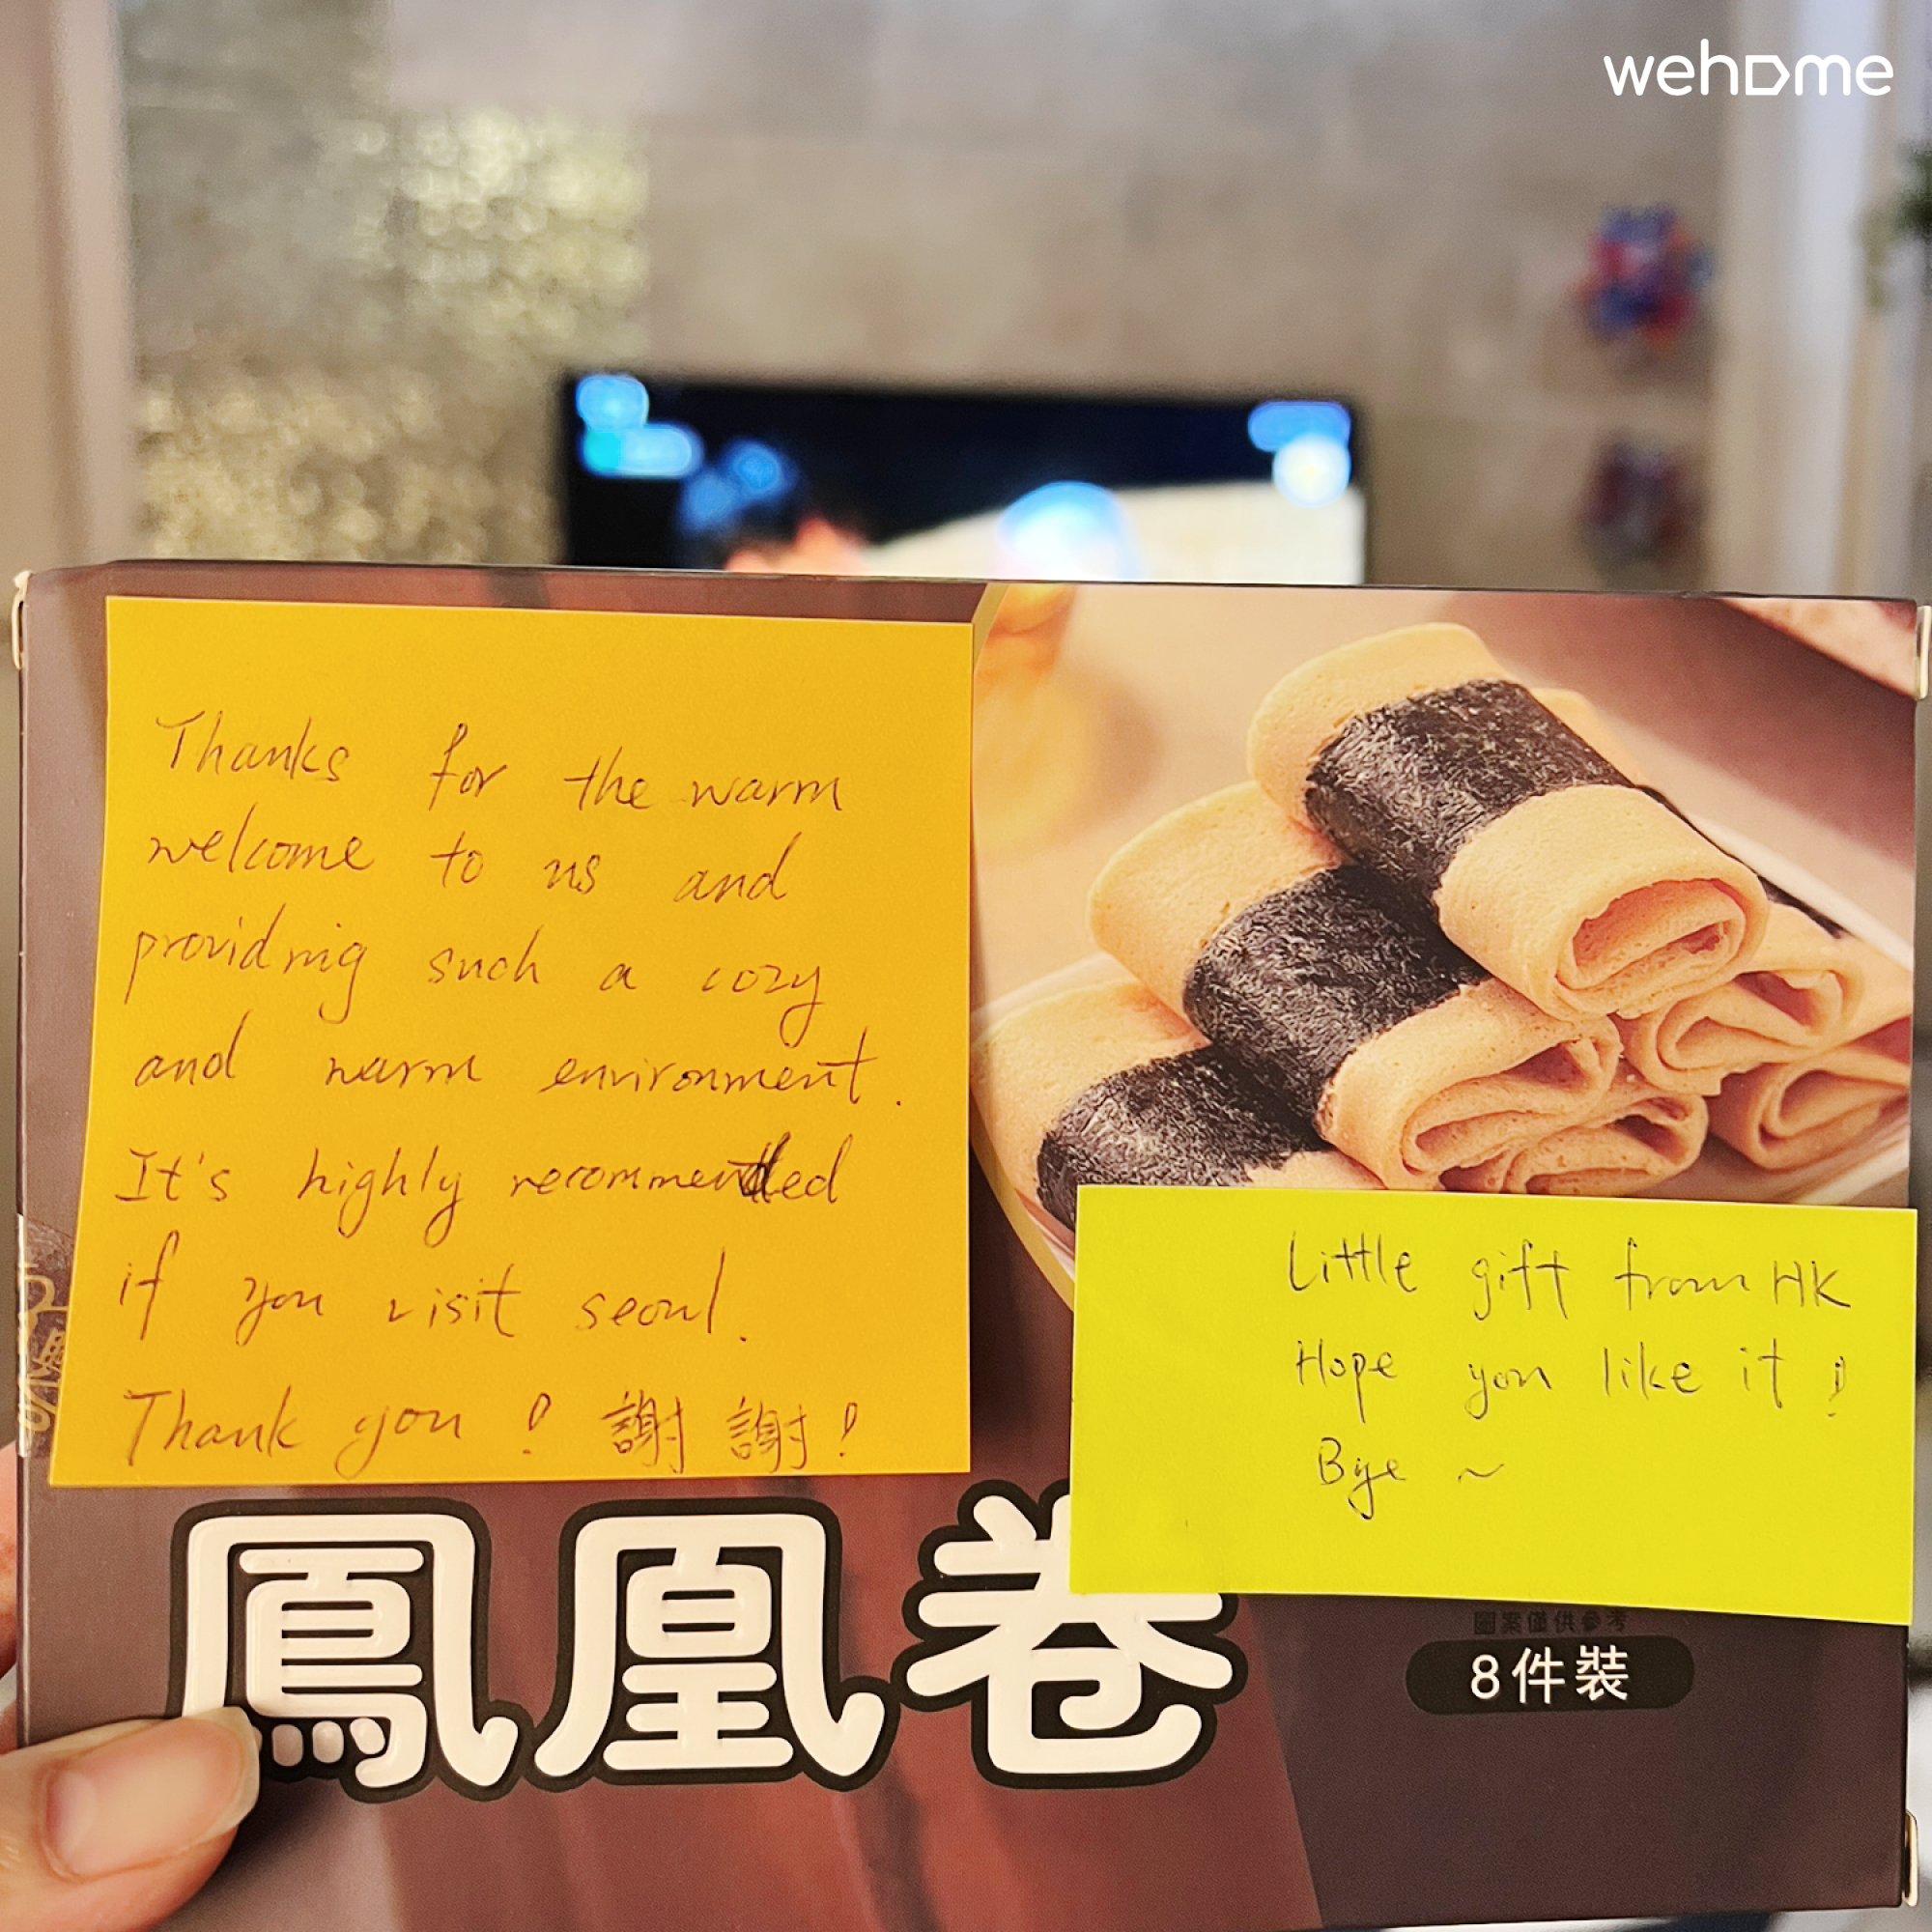 wehome
Thanks for the warm
welcome to us and
providing such a cozy
and warm environment.
It's highly recommended
if you visit seoul.
Thank you! 謝謝!
Little gift from HK
Hope you like it!
Bye ~
鳳凰卷
圖案僅供參考
8件裝